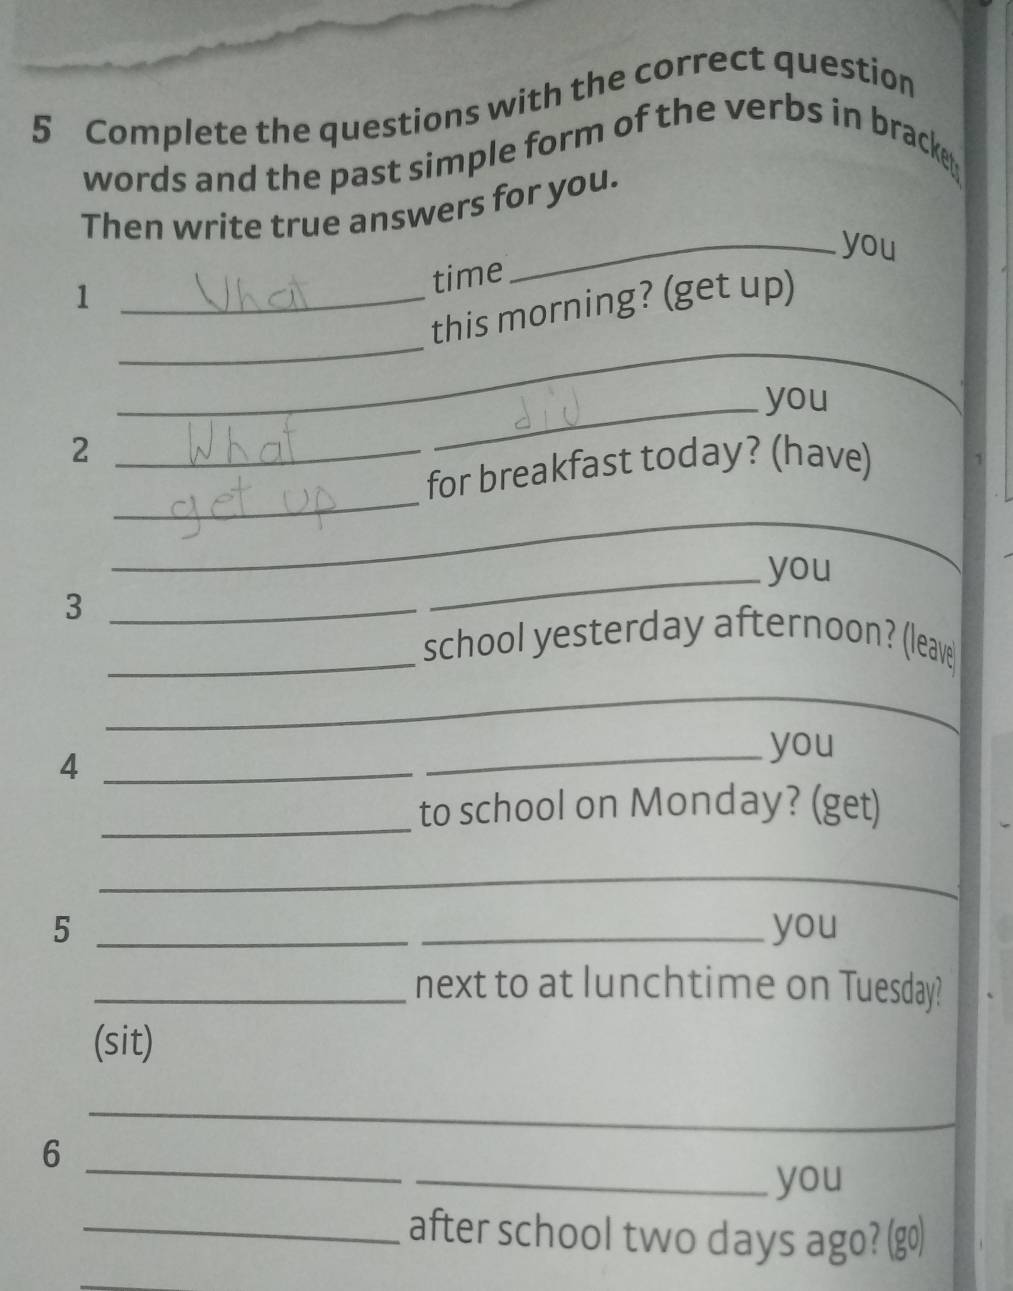 5 Complete the questions with the correct question
words and the past simple form of the verbs in brackets.
Then write true answers for you.
1 What time you
this morning? (get up)
2 What did you
get up for breakfast today? (have)
3 you
school yesterday afternoon? (leave)
4 you
to school on Monday? (get)
5 you
next to at lunchtime on Tuesday?
(sit)
6 you
after school two days ago? (go)